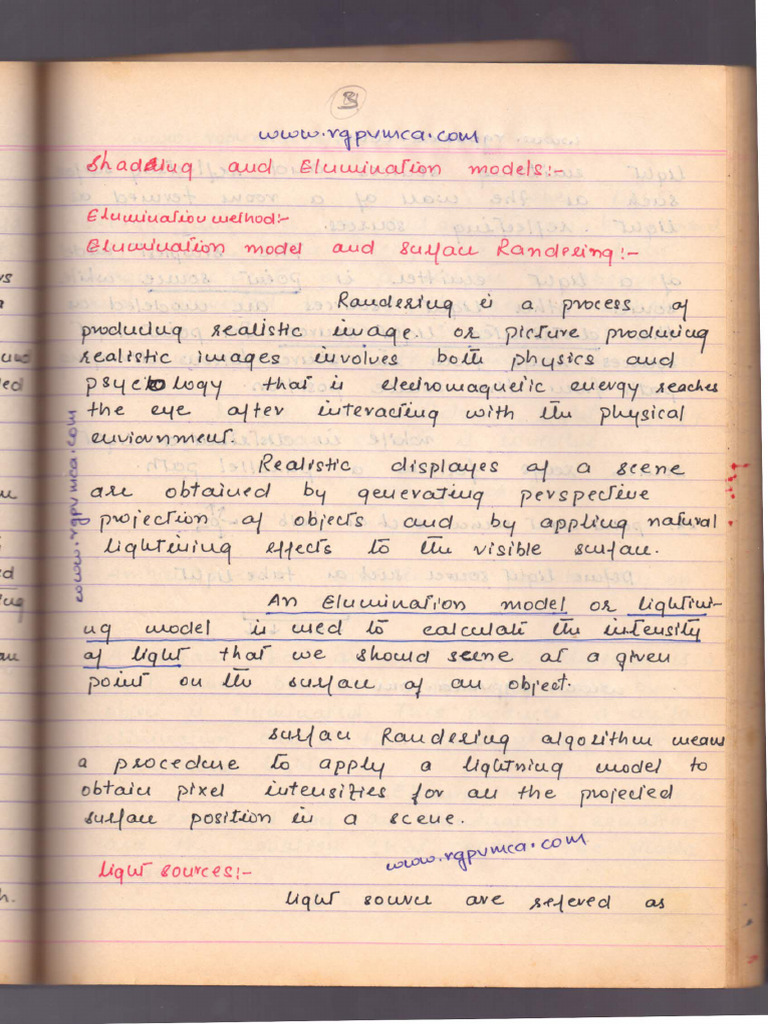 www.rgpvmca.com
Shading and Elumination models:-
Elumination method:-
Elumination model and surface Randering:-
Randering is a process of
producing realistic image. or picture producing
realistic images involves both physics and
psycology that is electromagnetic energy reaches
the eye after interacting with the physical
enviornment.
Realistic displayes of a scene
are obtained by generating perspective
projection of objects and by applying natural
lightining effects to the visible surface.
An Elumination model or lightini-
ng model is used to calculate the intensity
of light that we should scene at a given
point on the surface of an object.
surface Randering algorithm means
a procedure to apply a lightning model to
obtain pixel intensities for all the projected
surface position in a scene.
www.rgpvmca.com
light sources:-
light source are refered as
www.rgpvmca.com